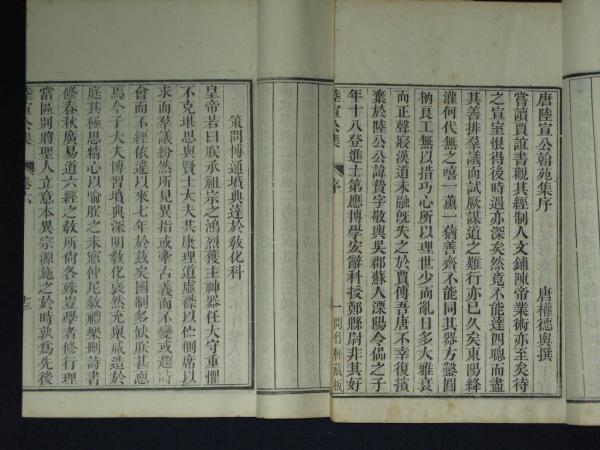 唐陸宣公翰苑集序 唐權德輿撰
嘗讀賈誼書觀其經制人文鋪陳帝業術亦至矣待
之宣室恨得後時遇亦深矣然竟不能達四聰而盡
其善排羣議而試厥謀道之難行亦已久矣東陽絳
灌何代無之嘻一薰一蕕善齊不能同其器方鑿圓
枘良工無以措巧心所以理世少而亂日多大雅衰
而正聲寢漢道未融旣失之於賈傅吾唐不幸復擯
棄於陸公公諱贄字敬輿吳郡蘇人溧陽令偘之子
年十八登進士第應博學宏辭科授鄭縣尉非其好
陸宣公集 序 一 問竹軒藏板
策問博通墳典達於敎化科
皇帝若曰朕承祖宗之鴻烈獲主神器任大守重懼
不克堪思與賢士大夫共康理道虛襟以佇側席以
求而羣議紛然所見異指或牽古義而不變或趨時
會而不經依違以來七年於茲矣國制多缺朕甚恧
焉今子大夫博習墳典深明敎化褎然充舉咸造於
庭其極思精心以喻朕之未寤仲尼敘禮樂刪詩書
修春秋廣易道六經之敎所尙各殊豈學者修行理
當區别將聖人立意本異宗源施之於時孰爲先後
陸宣公集 卷六